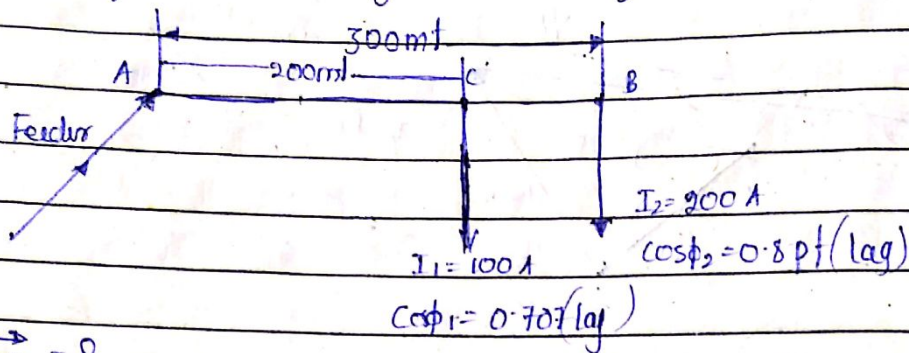 300mt
200mt
A
C
B
Feeder
I₂= 200 A
cosϕ₂ = 0.8 pf (lag)
I₁ = 100 A
Cosϕ₁= 0.707 (lag)